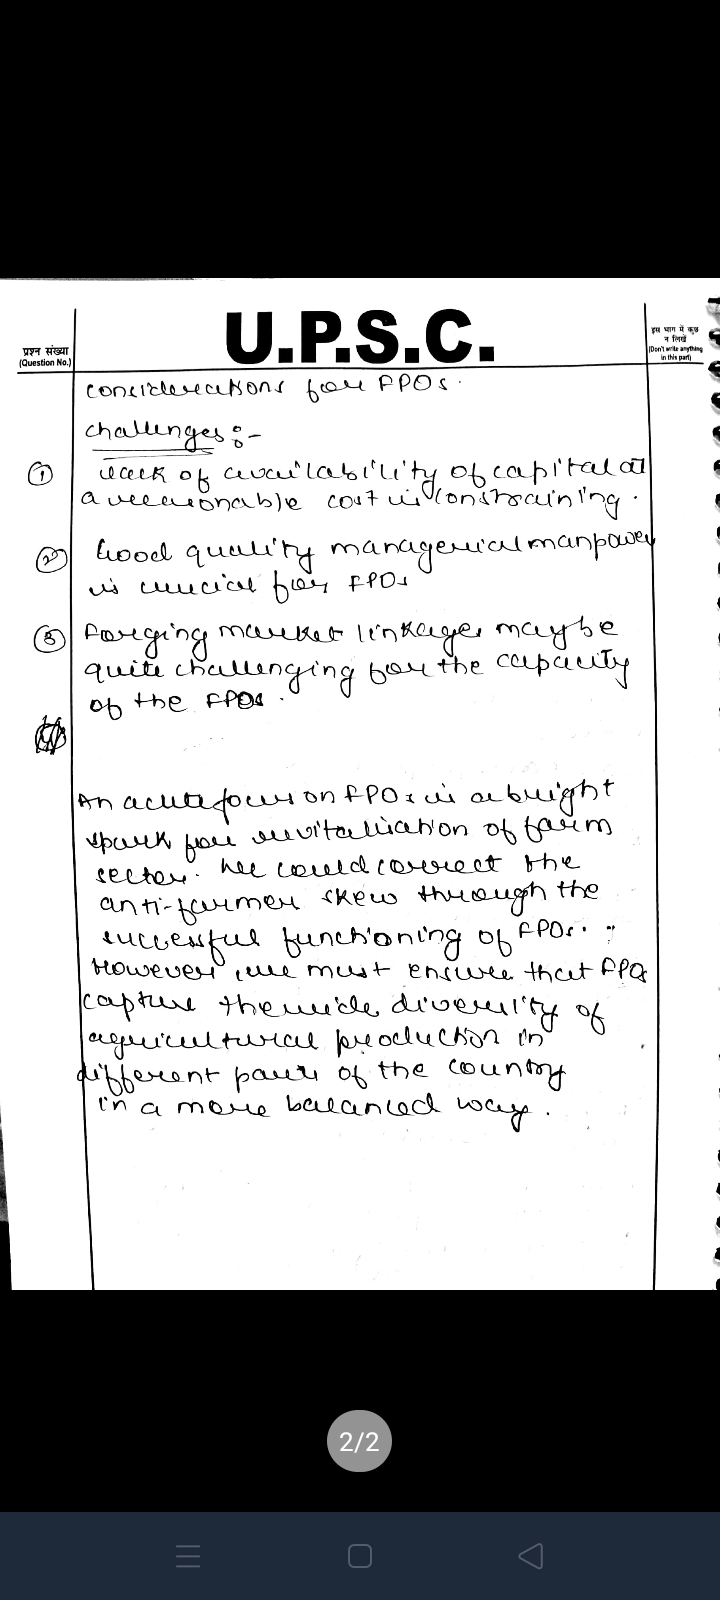 U.P.S.C.
प्रश्न संख्या
(Question No.)
इस भाग में कुछ
न लिखें
(Don't write anything
in this part)
considerations for FPOs.
challenges :-
① Lack of availability of capital at
a reasonable cost is constraining.
② Good quality managerial manpower
is crucial for FPOs
③ Forging market linkages may be
quite challenging for the capacity
of the FPOs.
An acute focus on FPOs is a bright
spark for revitalisation of farm
sector. We could correct the
anti-farmer skew through the
successful functioning of FPOs.
However, we must ensure that FPOs
capture the wide diversity of
agricultural production in
different parts of the country
in a more balanced way.
2/2